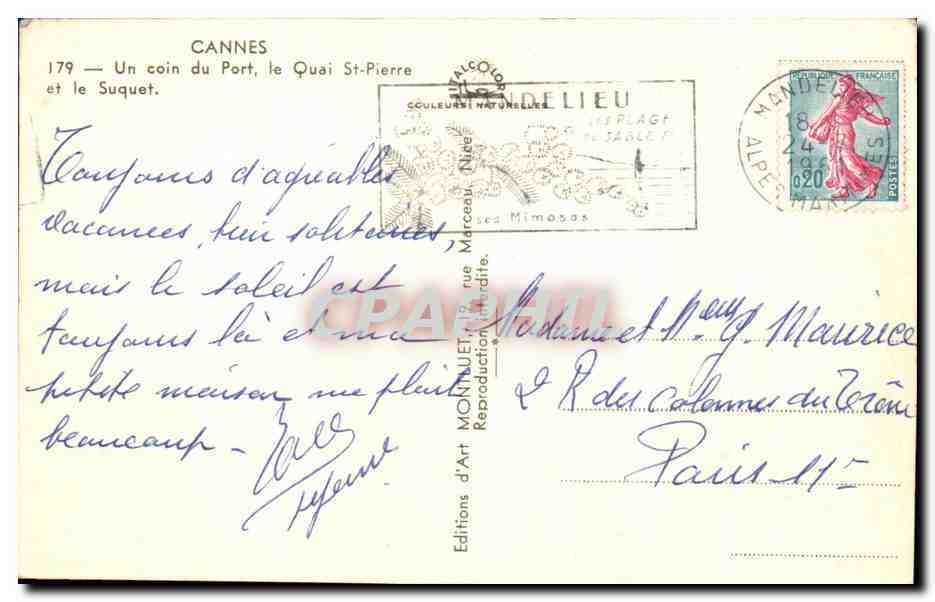 CANNES
179 — Un coin du Port, le Quai St-Pierre
et le Suquet.
ITALCOLOR
COULEURS NATURELLES
MANDELIEU
SES PLAGES
DE SABLE FIN
ses Mimosas
MANDELIEU
18
24
196
ALPES MARITIMES
RÉPUBLIQUE FRANÇAISE
0,20
POSTES
Toujours d'agréables
vacances, bien solitaires,
mais le soleil est
toujours là et ma
petite maison me plait
beaucoup -
CPARHII
Editions d'Art MONTLUET, 19, rue Marceau, Nice
Reproduction interdite.
Madame et G. Maurice
2 R des Colonnes du Trône
Paris 11e